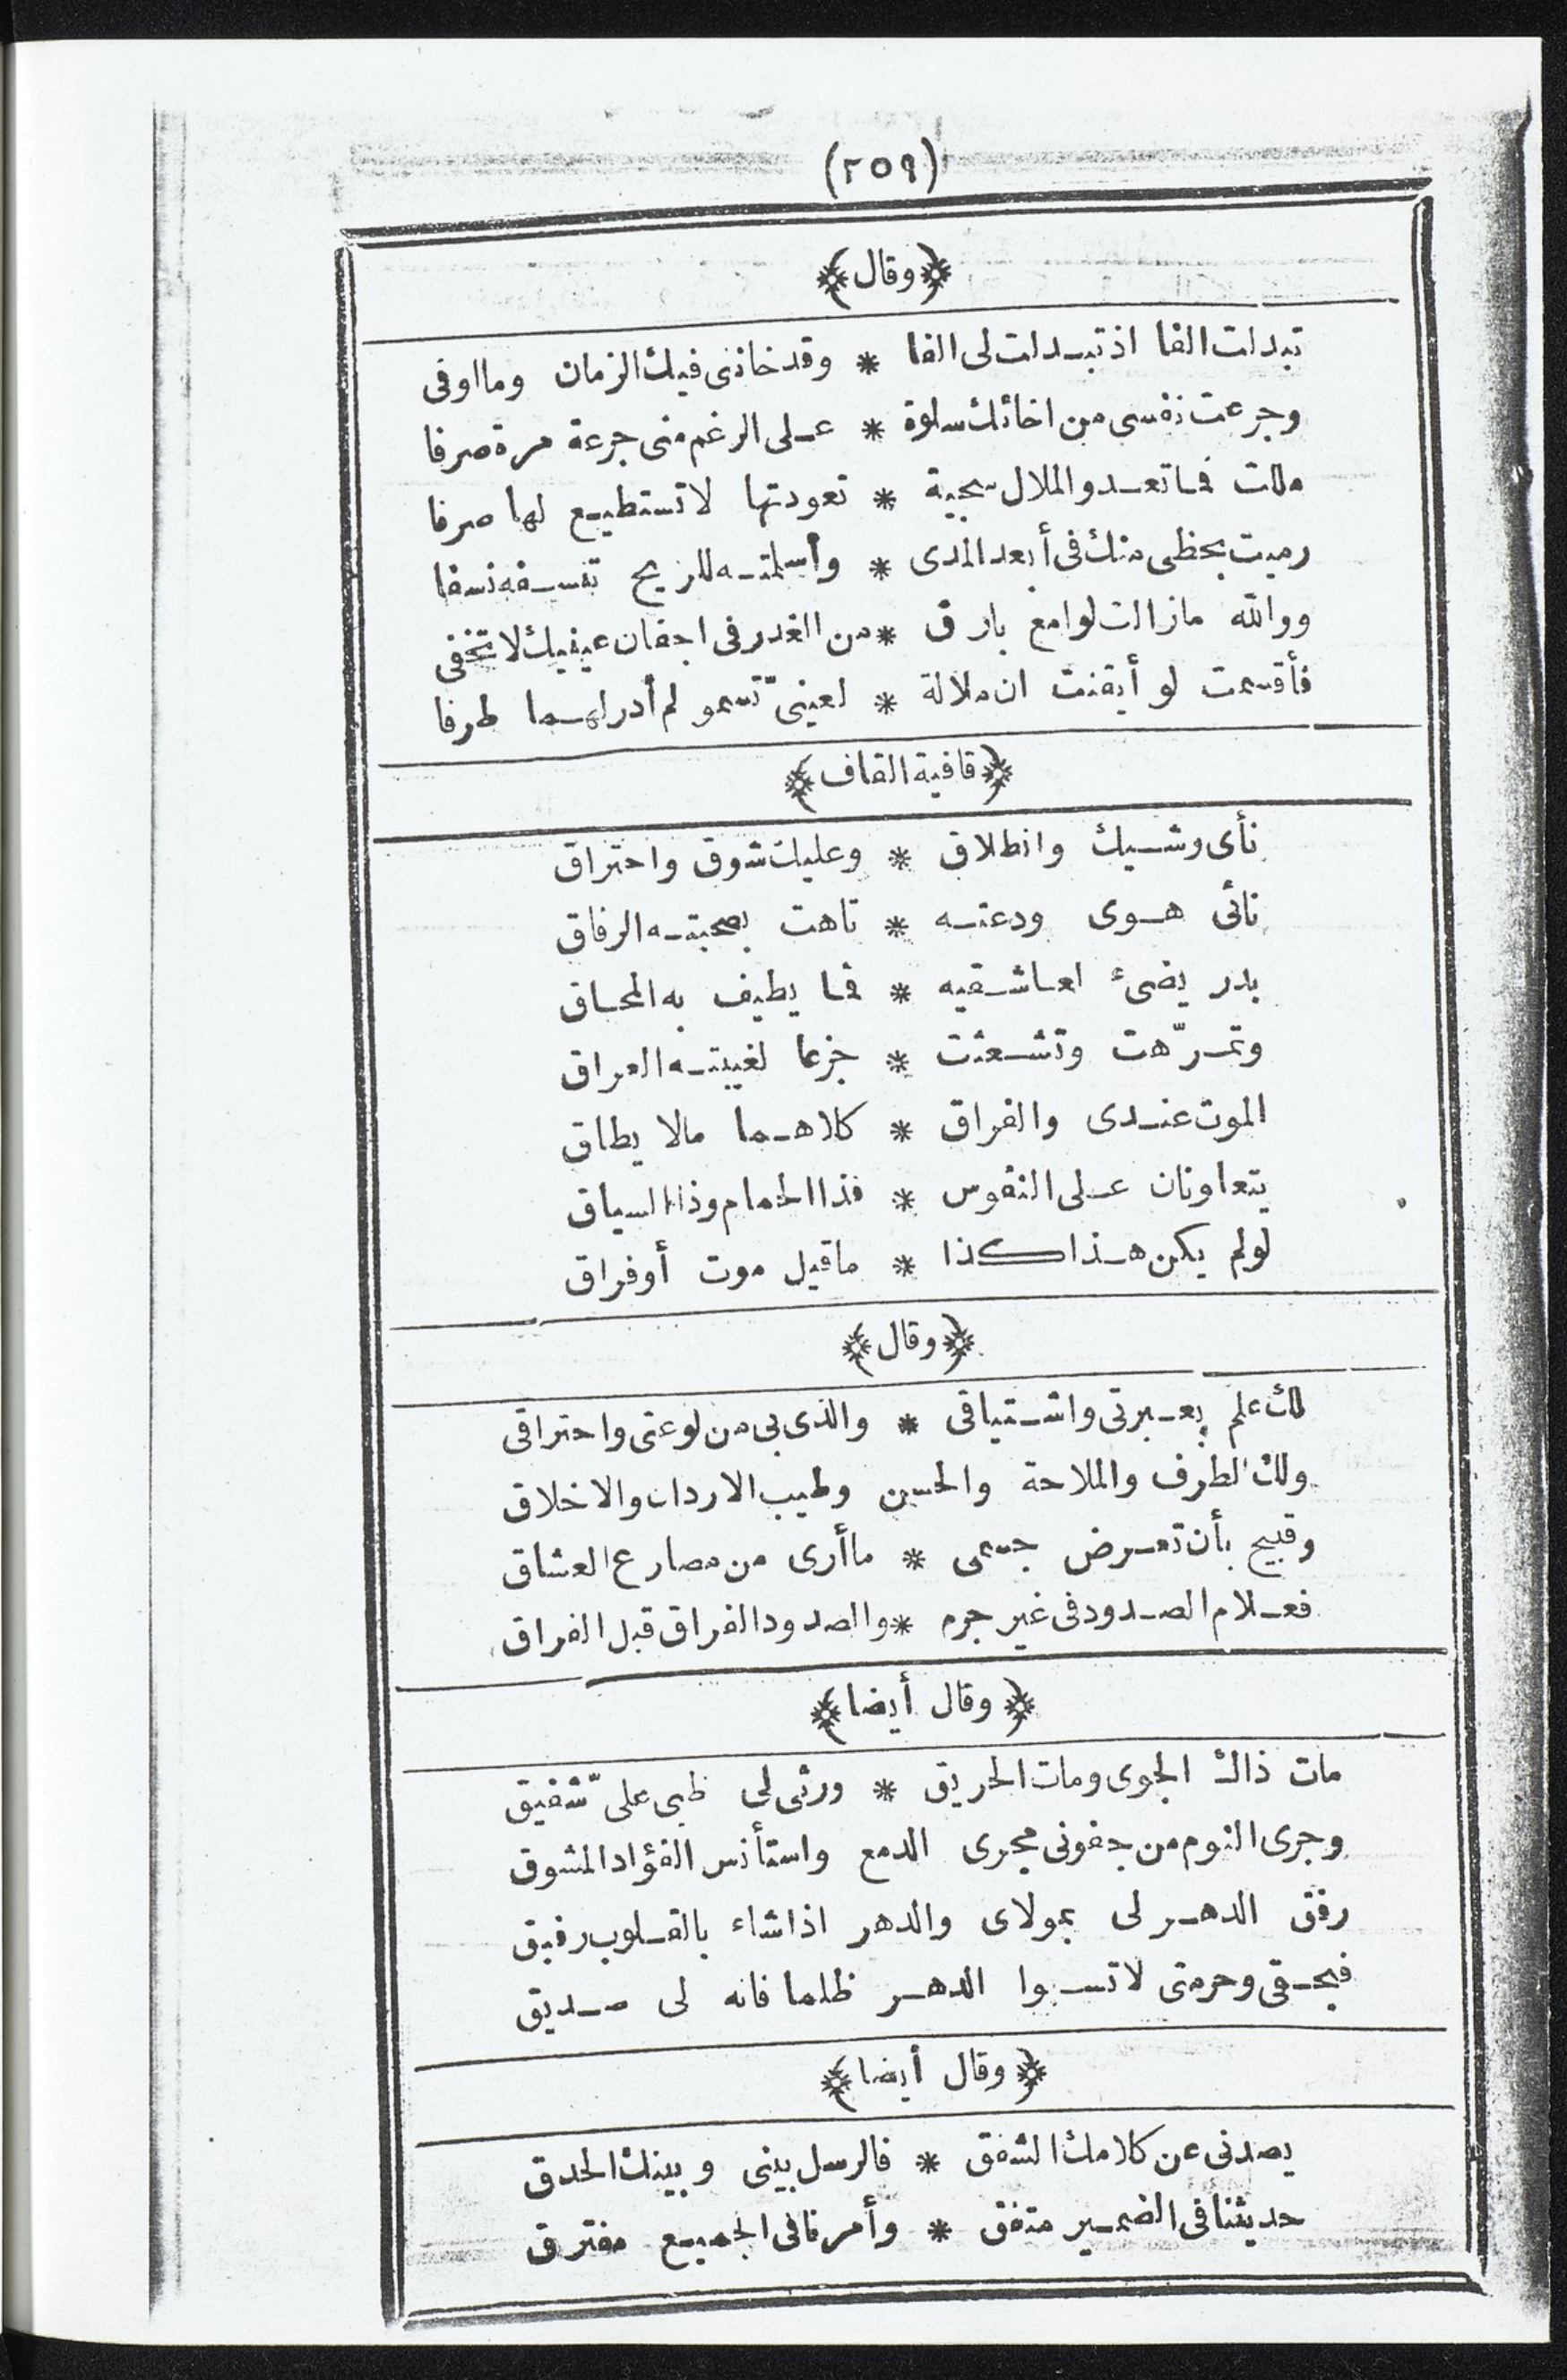 (٢٥٩)
﴿وقال﴾
تبدلت الفا اذ تبدلت لى الفا * وقد خاننى فيك الزمان وما اوفى
وجرعت نفسى من اخائك سلوة * على الرغم منى جرعة مرة صرفا
مللت فما تعدو الملال سجية * تعودتها لا تستطيع لها صرفا
رميت بحظى منك فى أبعد المدى * وأسلمته للريح تنسفه نسفا
ووالله مازالت لوامع بارق * من الغدر فى اجفان عينيك لا تخفى
فأقسمت لو أيقنت ان ملالة * لعينىّ تسمو لم أدر لهما طرفا
﴿قافية القاف﴾
نأى وشيك وانطلاق * وعليك شوق واحتراق
نائى هوى ودعته * تاهت بصحبته الرفاق
بدر يضىء لعاشقيه * فما يطيف به المحاق
وتمرّهت وتشعثت * جزعا لغيبته العراق
الموت عندى والفراق * كلاهما مالا يطاق
يتعاونان على النفوس * فذا الحمام وذا السياق
لولم يكن هذا كذا * ماقيل موت أوفراق
﴿وقال﴾
لك علم بعبرتى واشتياقى * والذى بى من لوعتى واحتراقى
ولك الظرف والملاحة والحسن وطيب الاردان والاخلاق
وقبيح بأن تعرض جسمى * ماأرى من مصارع العشاق
فعلام الصدود فى غير جرم * والصدود الفراق قبل الفراق
﴿وقال أيضا﴾
مات ذاك الجوى ومات الحريق * ورثى لى ظبى علىّ شفيق
وجرى النوم من جفونى مجرى الدمع واستأنس الفؤاد المشوق
رفق الدهر لى بمولاى والدهر اذا شاء بالقلوب رفيق
فبحقى وحرمتى لا تسبوا الدهر ظلما فانه لى صديق
﴿وقال أيضا﴾
يصدنى عن كلامك الشفق * فالرسل بينى وبينك الحدق
حديثنا فى الضمير متفق * وأمرنا فى الجميع مفترق